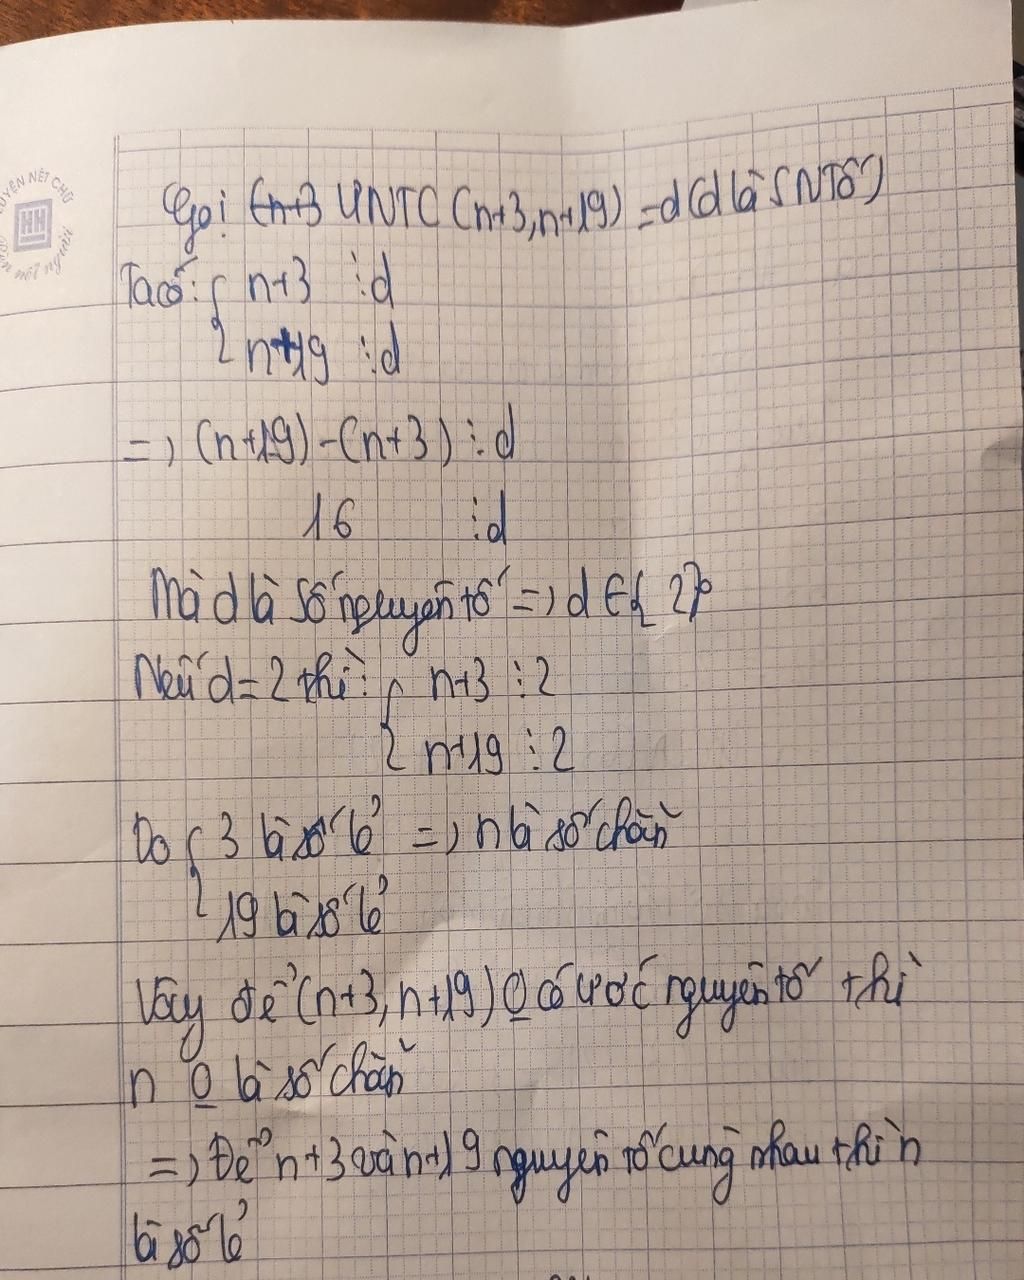 NÉT CHỮ
HH
Gọi ƯNTC (n+3, n+19) = d (d là SNTố)
Ta có: { n+3 ⋮ d
n+19 ⋮ d
=> (n+19) - (n+3) ⋮ d
16 ⋮ d
Mà d là số nguyên tố => d ∈ { 2}
Nếu d = 2 thì: { n+3 ⋮ 2
n+19 ⋮ 2
Do { 3 là số lẻ => n là số chẵn
19 là số lẻ
Vậy để (n+3, n+19) 0 có ước nguyên tố thì
n 0 là số chẵn
=> Để n+3 và n+19 nguyên tố cùng nhau thì n
là số lẻ